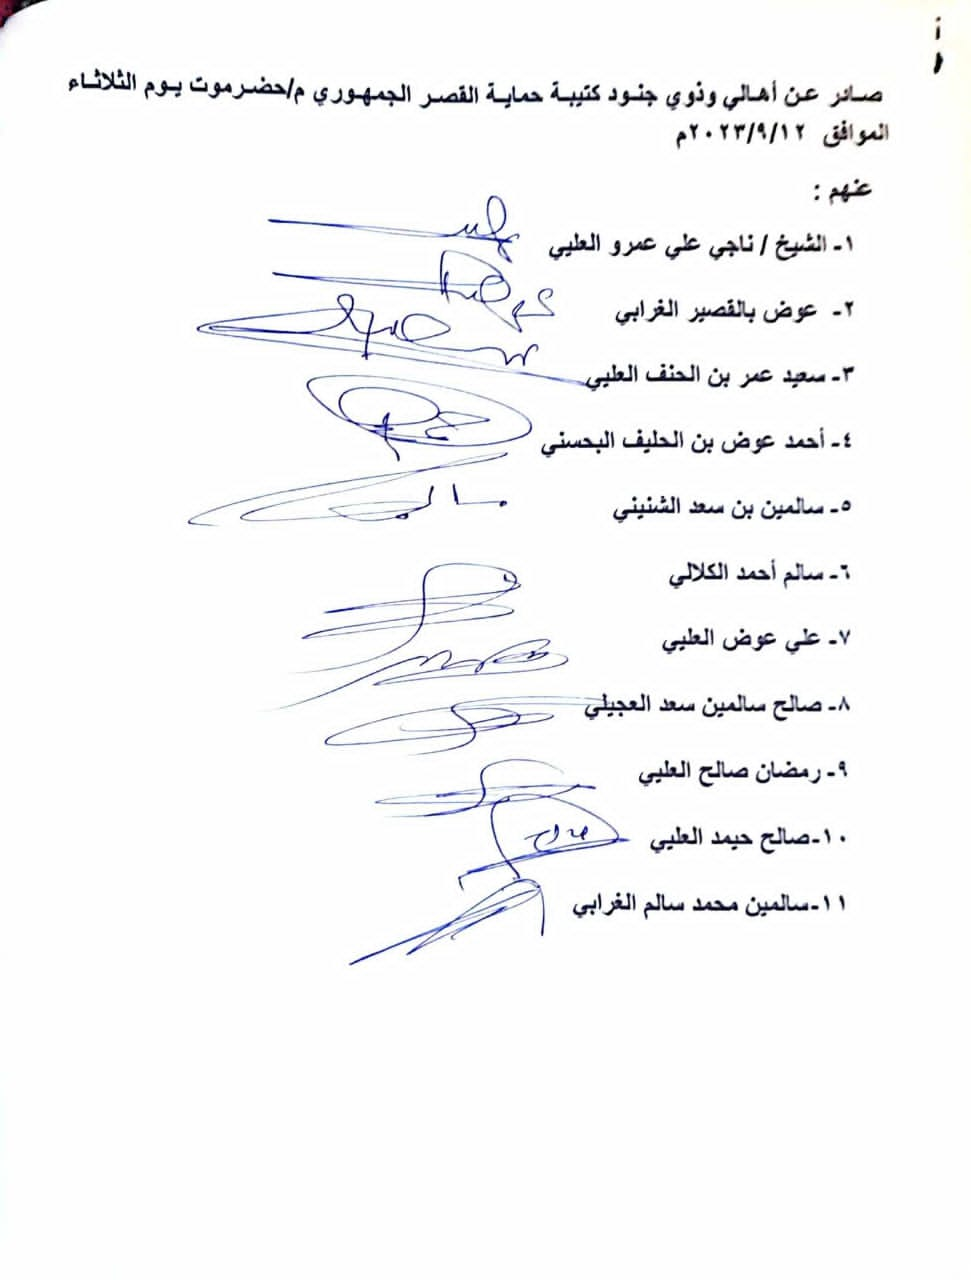 صادر عن أهالي وذوي جنود كتيبة حماية القصر الجمهوري م/حضرموت يوم الثلاثاء
الموافق ٢٠٢٣/٩/١٢م
عنهم :
١- الشيخ / ناجي علي عمرو العليي
٢- عوض بالقصير الغرابي
٣- سعيد عمر بن الحنف العليي
٤- أحمد عوض بن الحليف البحسني
٥- سالمين بن سعد الشنيني
٦- سالم أحمد الكلالي
٧- علي عوض العليي
٨- صالح سالمين سعد العجيلي
٩- رمضان صالح العليي
١٠-صالح حيمد العليي
١١-سالمين محمد سالم الغرابي